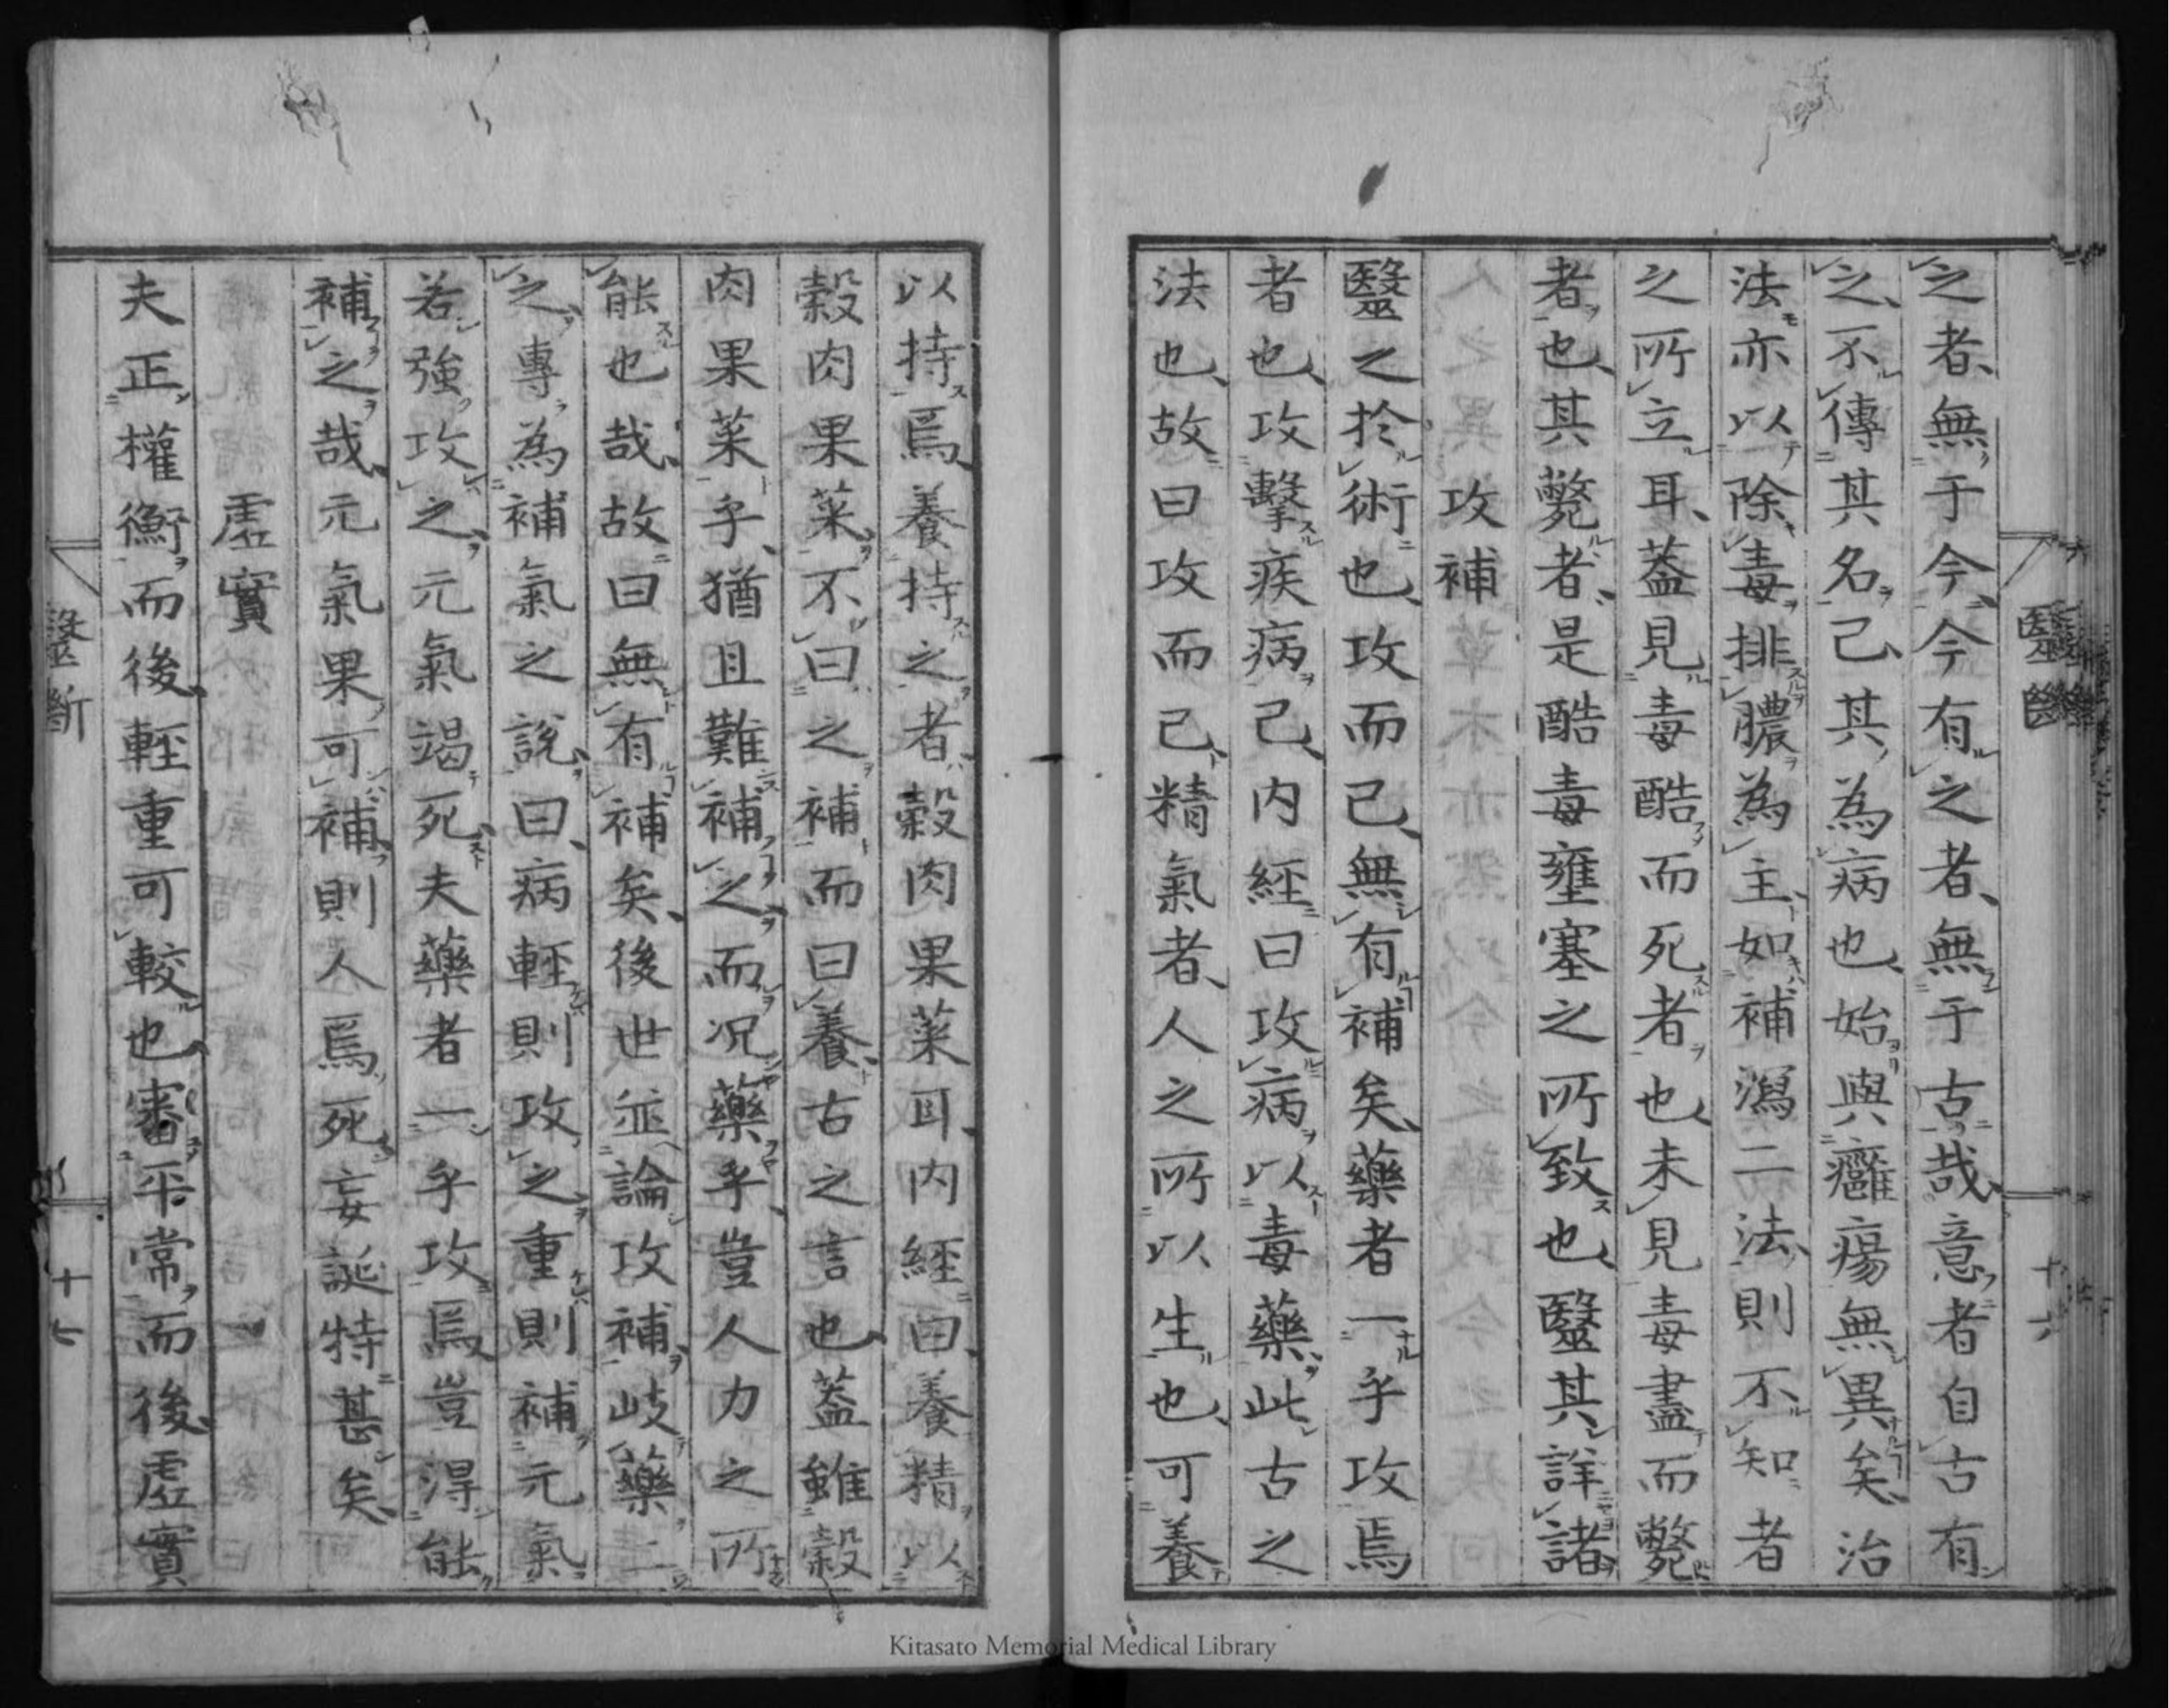 之者無于今今有之者無于古哉意者自古有
之不傳其名已其為病也始與癰瘍無異矣治
法亦以除毒排膿為主如補瀉二法則不知者
之所立耳蓋見毒酷而死者也未見毒盡而斃
者也其斃者是酷毒壅塞之所致也醫其詳諸
攻補
醫之於術也攻而已無有補矣藥者一乎攻焉
者也攻擊疾病已內經曰攻病以毒藥此古之
法也故曰攻而已精氣者人之所以生也可養
以持焉養持之者穀肉果菜耳內經曰養精以
穀肉果菜不曰之補而曰養古之言也蓋雖穀
肉果菜乎猶且難補之而況藥乎豈人力之所
能也哉故曰無有補矣後世並論攻補岐藥二
之專為補氣之說曰病輕則攻之重則補元氣
若強攻之元氣竭死夫藥者一乎攻焉豈得能
補之哉元氣果可補則人焉死妄誕特甚矣
虛實
夫正權衡而後輕重可較也審平常而後虛實
醫斷
十七
Kitasato Memorial Medical Library